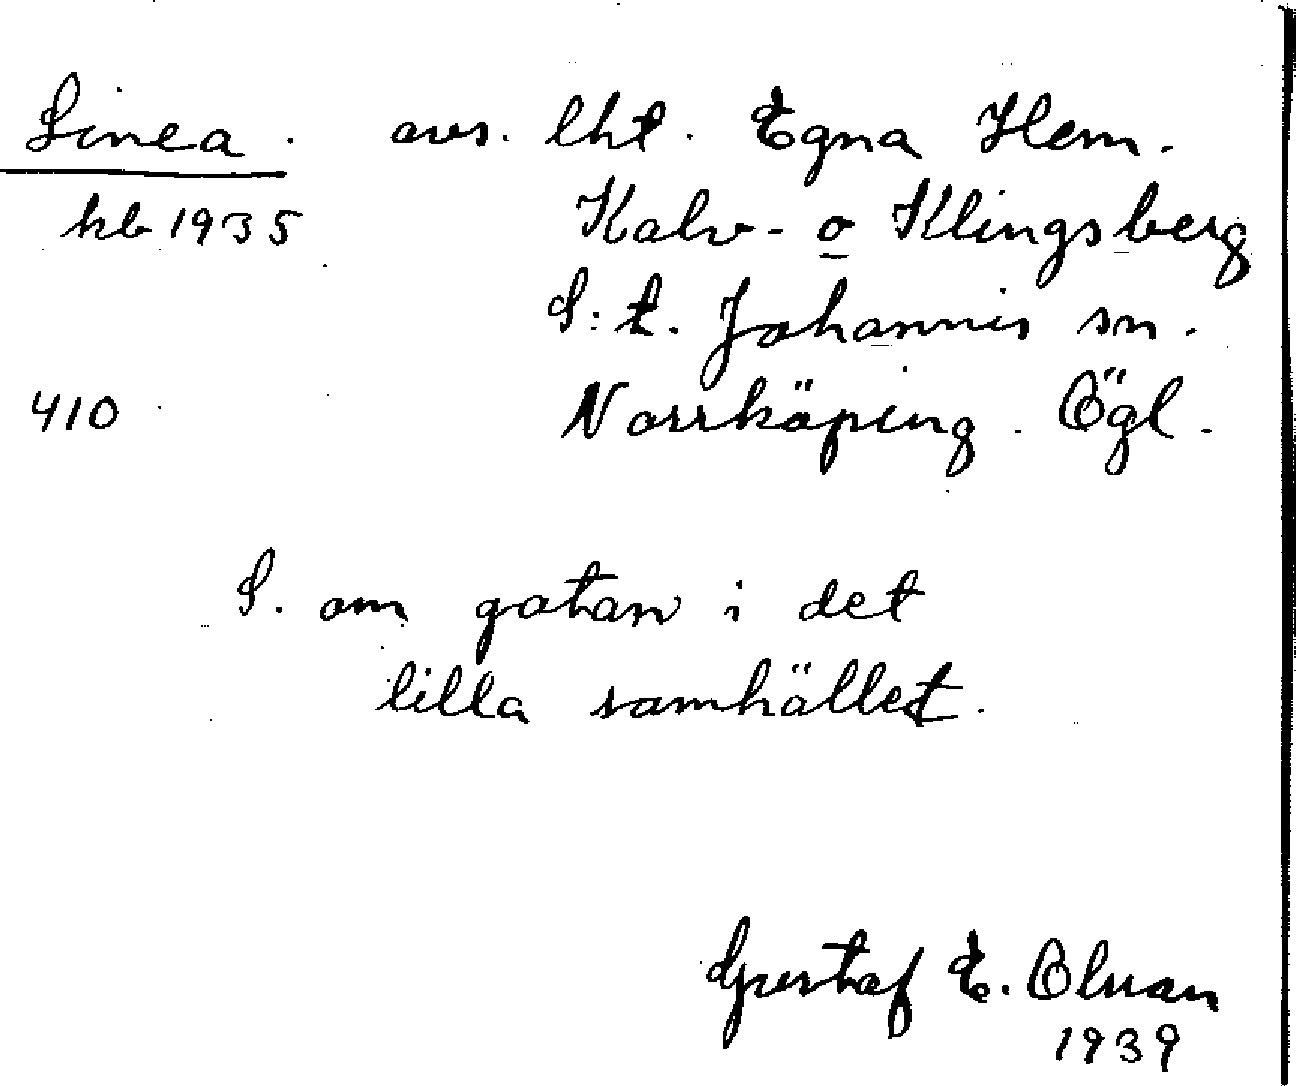 Linea. avs. lht. Egna Hem.
kb 1935 Kalv- o Klingsberg
S:t. Johannis sn.
410 Norrköping. Ögl.
S. om gatan i det
lilla samhället.
Gustaf E. Oluan
1939